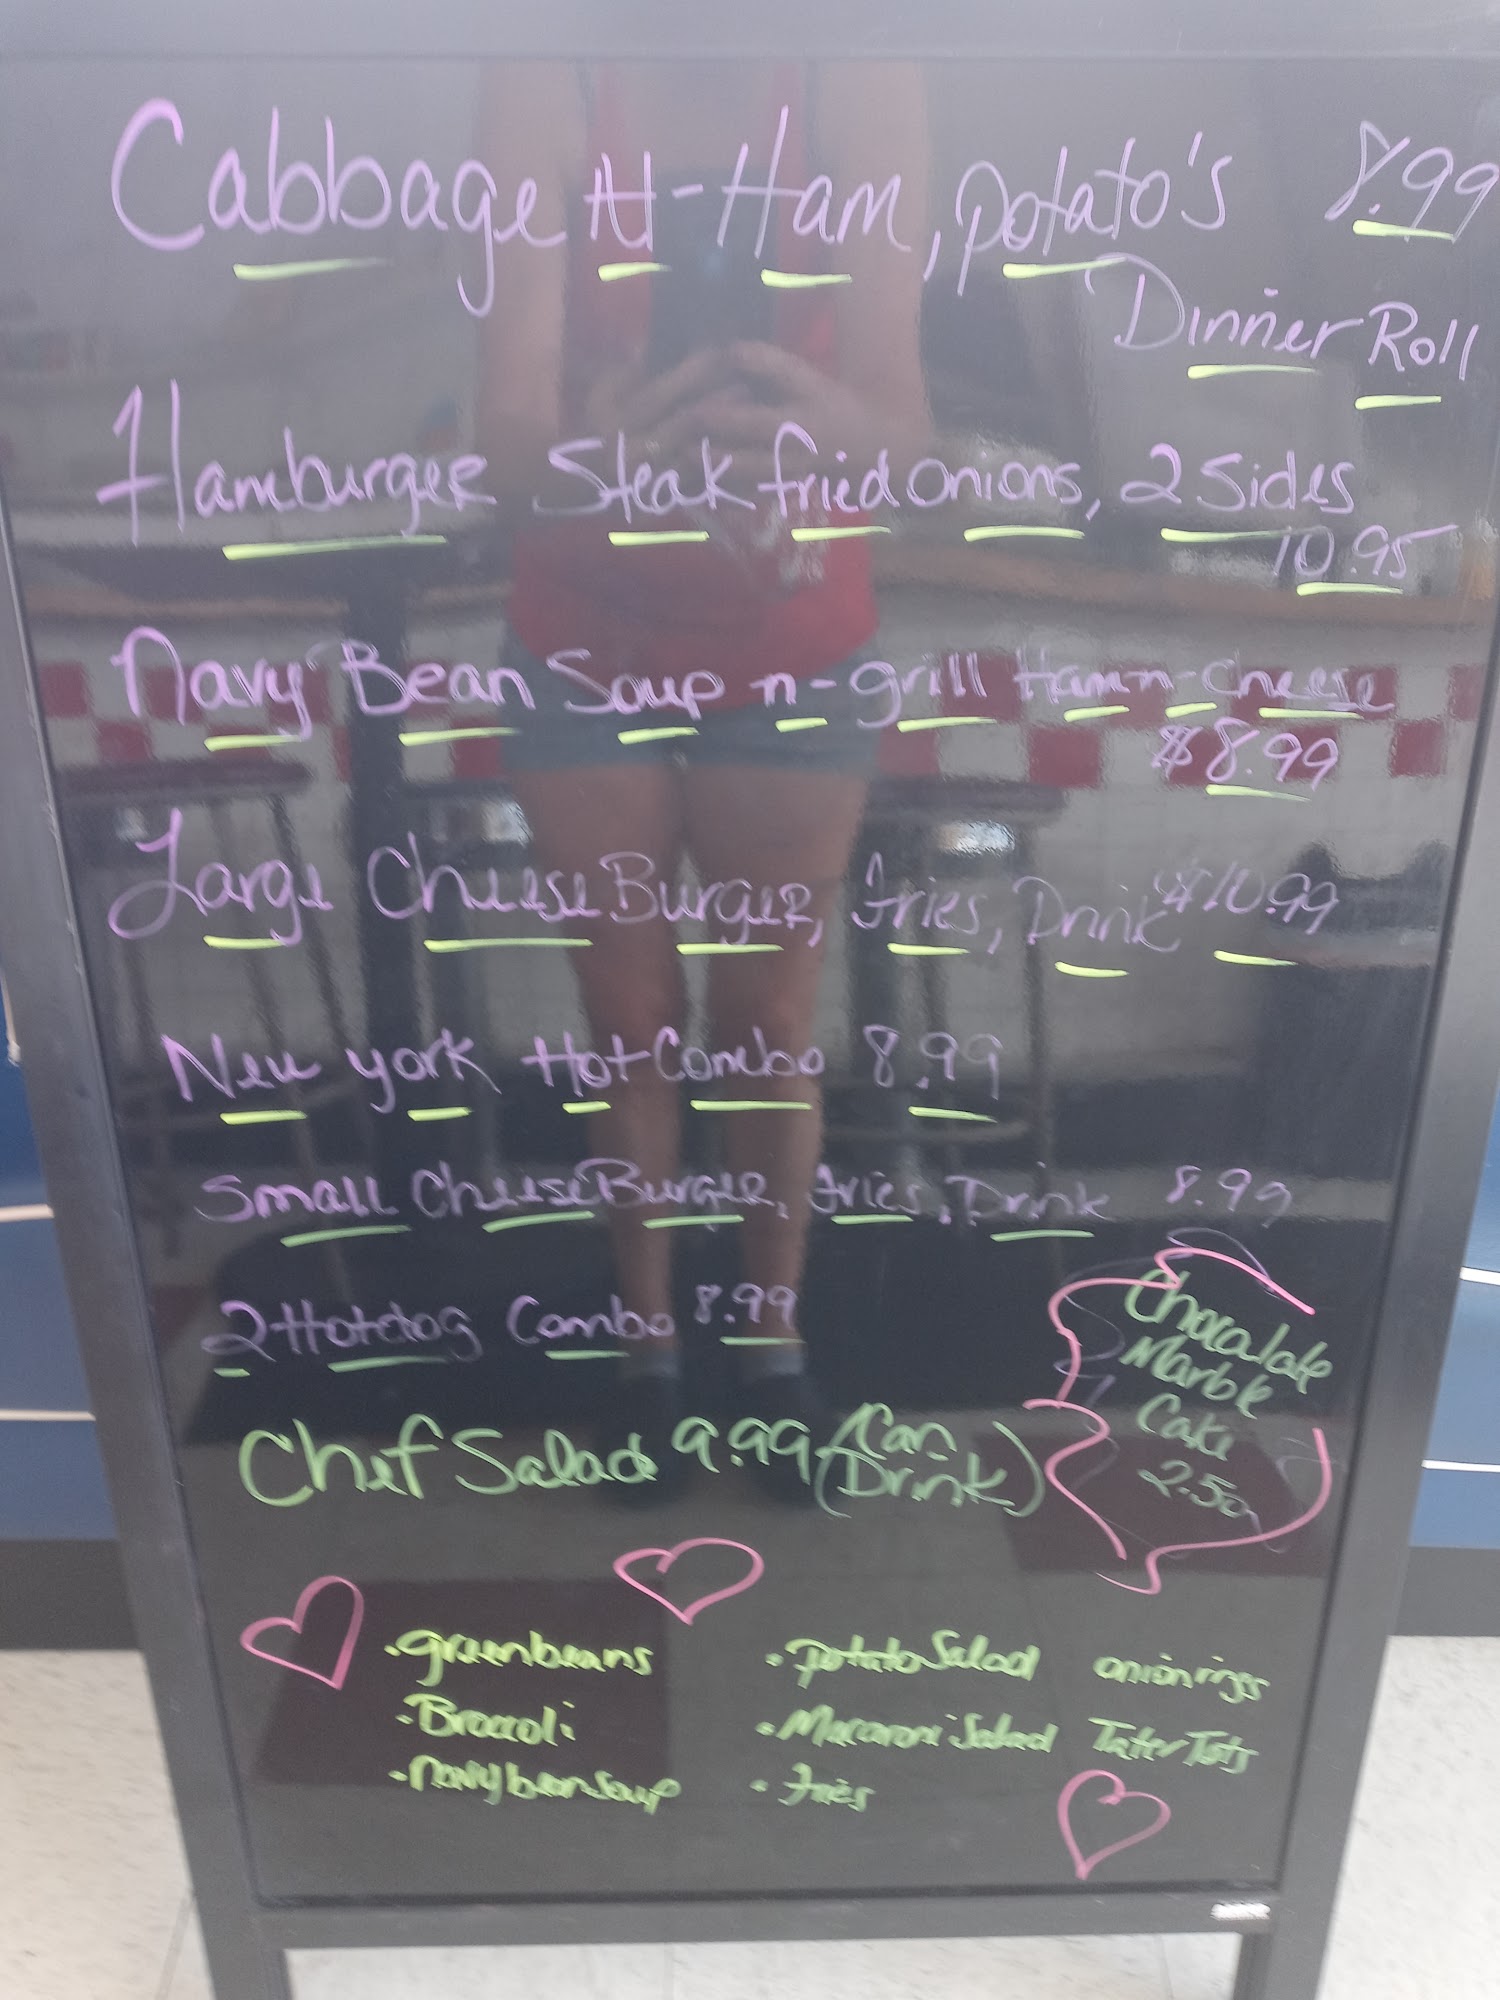 Cabbage N-Ham, potato's 8.99
Dinner Roll
Hamburger Steak fried onions, 2 Sides
10.95
Navy Bean Soup n-grill Ham n-cheese
$8.99
Large Cheese Burger, Fries, Drink $10.99
New york Hot Combo 8.99
Small Cheese Burger, Fries, Drink 8.99
2 Hotdog Combo 8.99
Chocolate
Marble
Cake
2.50
Chef Salad 9.99 (Can
Drink)
•greenbeans
•Broccoli
•navy bean soup
•potato Salad
•Macaroni Salad
•Fries
onion rings
Tater Tots